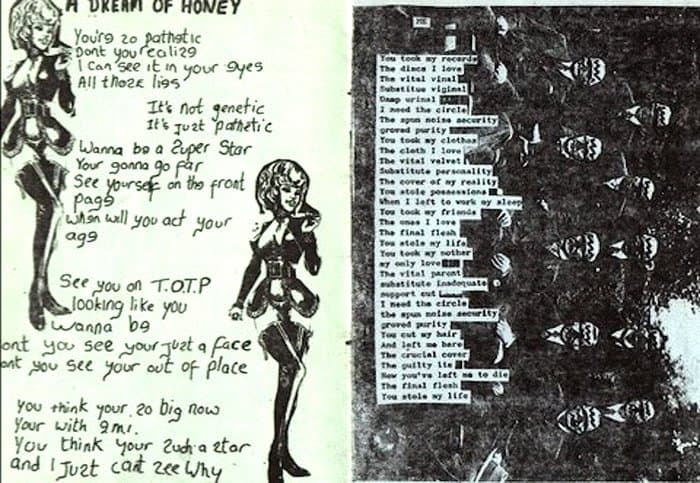 A DREAM OF HONEY
You're so pathetic
Dont you realise
I can see it in your eyes
All those lies
It's not genetic
It's just pathetic
Wanna be a Super Star
Your gonna go far
See yourself on the front
page
When will you act your
age
See you on T.O.T.P
looking like you
wanna be
ont you see your just a face
ont you see your out of place
You think your so big now
Your with emi.
You think your such a star
and I Just cant see why
You took my records
The discs I love
The vital vinal
Substitue viginal
Damp urinal
I need the circle
The spun noise security
groved purity
You took my clothes
The cloth I love
The vital velvet
Substitute personality
The cover of my reality
You stole possessions
When I left to work my sleep
You took my friends
The ones I love
The final flesh
You stole my life
You took my mother
my only love
The vital parent
substitute inadequate
support out
I need the circle
the spun noise security
groved purity
You cut my hair
And left me bare
The crucial cover
The guilty lie
Now you've left me to die
The final flesh
You stole my life